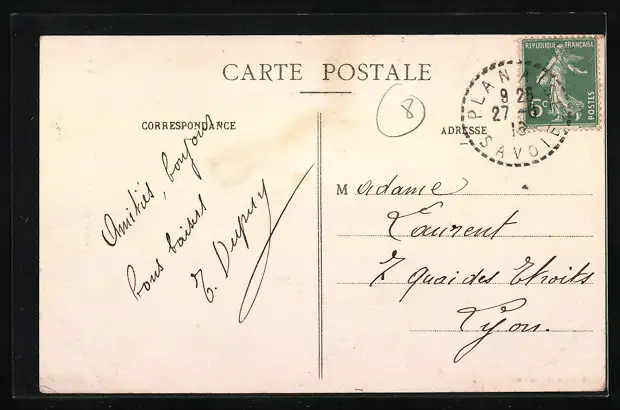 CARTE POSTALE
8
REPUBLIQUE FRANÇAISE
5c
POSTES
PLAN
9 25
27
SAVOIE
CORRESPONDANCE
ADRESSE
Amitiés, bonjour
bons baisers
Dupuy
Madame
Laurent
7 quai des Etroits
Lyon.